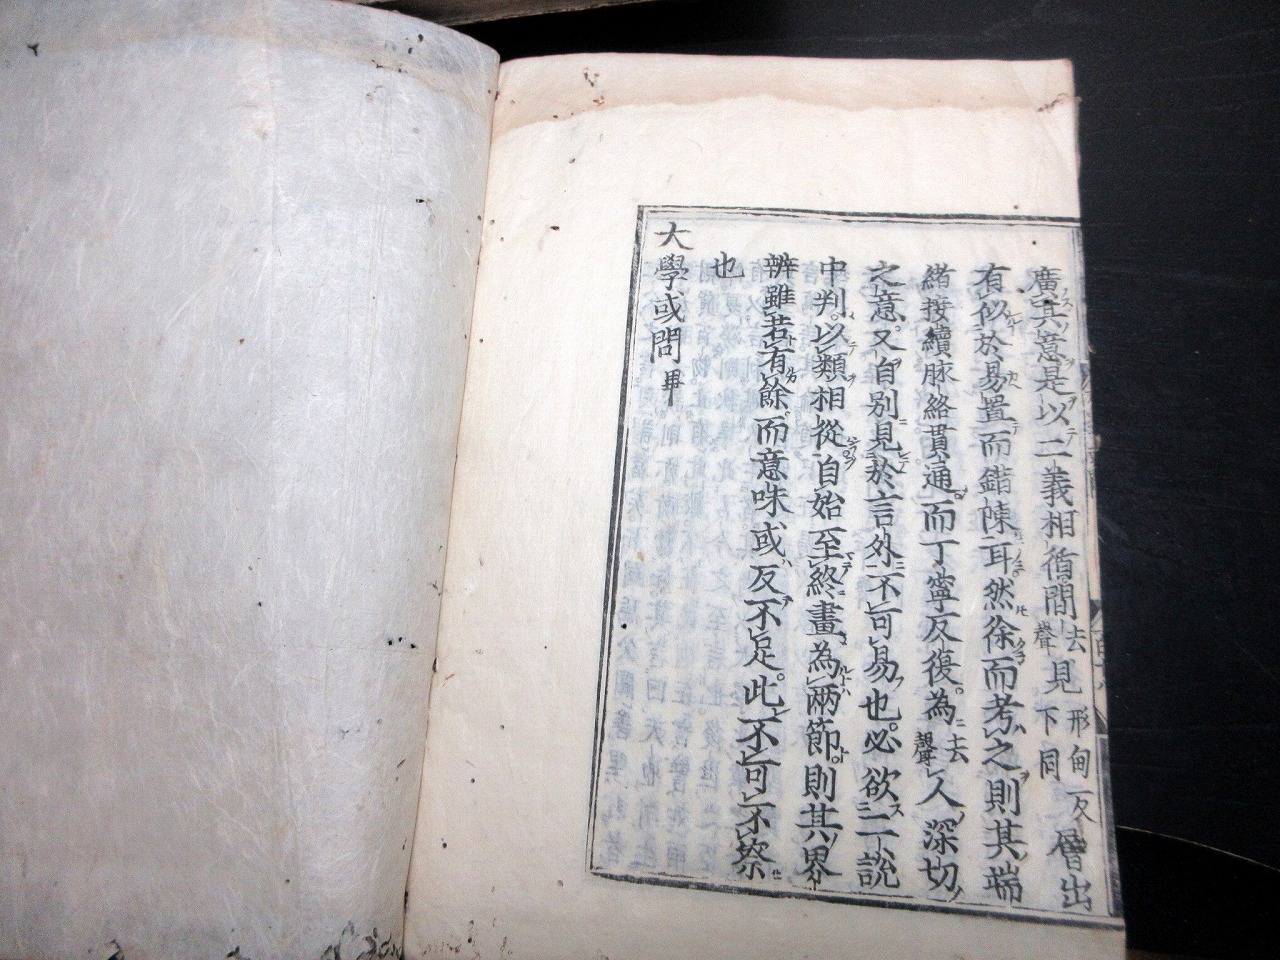 廣其意是以二義相循間去聲見形甸反下同層出
有似於易置而錯陳耳然徐而考之則其端
緒接續脉絡貫通而丁寧反復為去聲人深切
之意又自別見於言外不可易也必欲二說
中判以類相從自始至終畫為兩節則其界
辨雖若有餘而意味或反不足此不可不察
也
大學或問畢